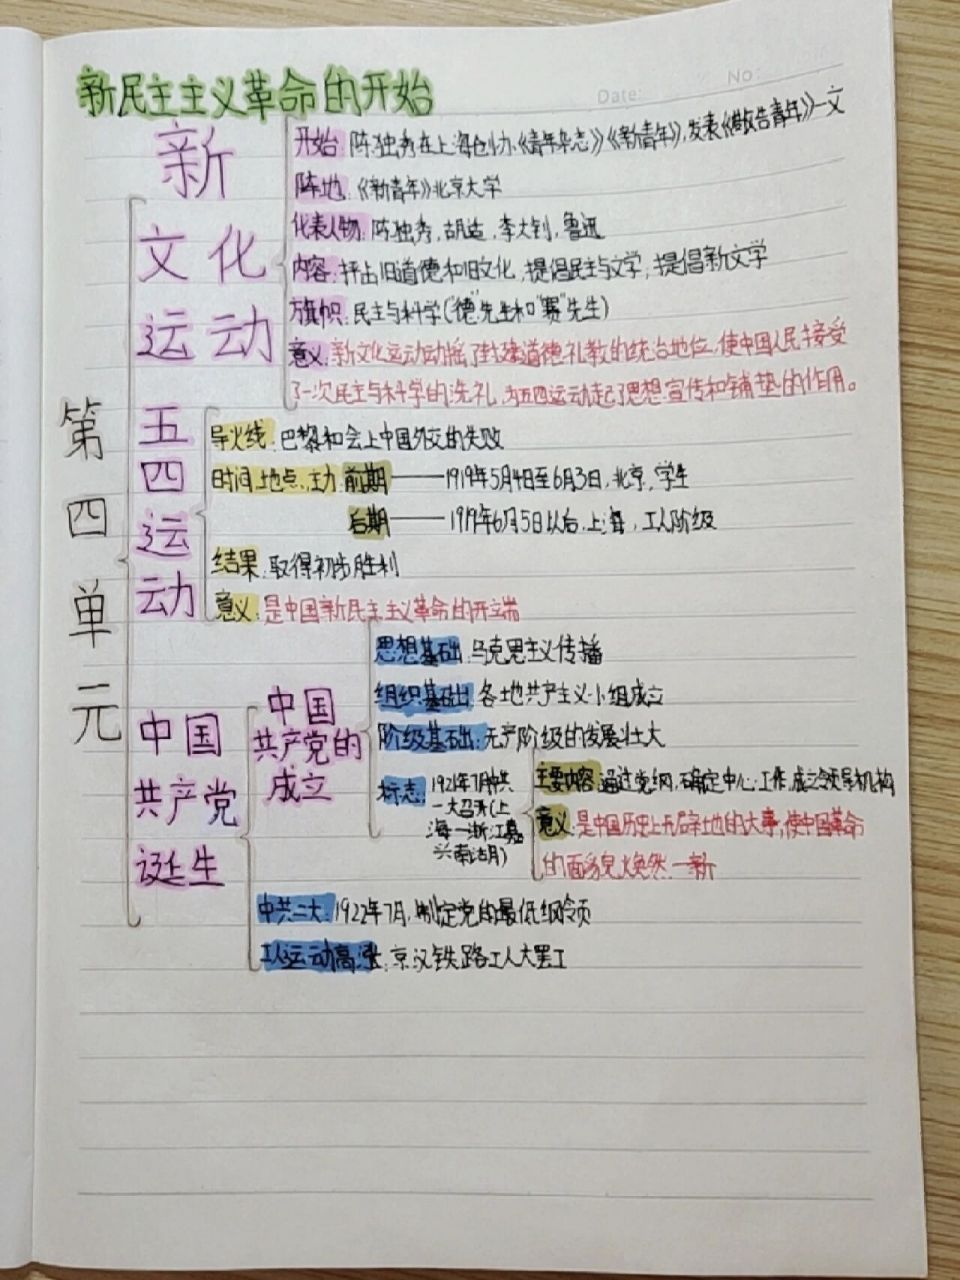 新民主主义革命的开始
Date:
No:
第四单元
新文化运动
开始:陈独秀在上海创办《青年杂志》《新青年》,发表《敬告青年》一文
阵地:《新青年》北京大学
代表人物:陈独秀,胡适,李大钊,鲁迅
内容:抨击旧道德和旧文化,提倡民主与文学,提倡新文学
旗帜:民主与科学("德"先生和"赛"先生)
意义:新文化运动动摇了封建道德礼教的统治地位,使中国人民接受
了一次民主与科学的洗礼,为五四运动起了思想宣传和铺垫的作用。
五四运动
导火线:巴黎和会上中国外交的失败
时间、地点、主力:前期——1919年5月4日至6月3日,北京,学生
后期——1919年6月5日以后,上海,工人阶级
结果:取得初步胜利
意义:是中国新民主主义革命的开端
中国
共产党
诞生
中国
共产党的
成立
思想基础:马克思主义传播
组织基础:各地共产主义小组成立
阶级基础:无产阶级的发展壮大
标志:1921年7月中共
一大召开(上
海一浙江嘉
兴南湖)
主要内容:通过党纲,确定中心工作,成立领导机构
意义:是中国历史上开辟的大事,使中国革命
的面貌焕然一新
中共二大:1922年7月,制定党的最低纲领
工人运动高涨:京汉铁路工人大罢工